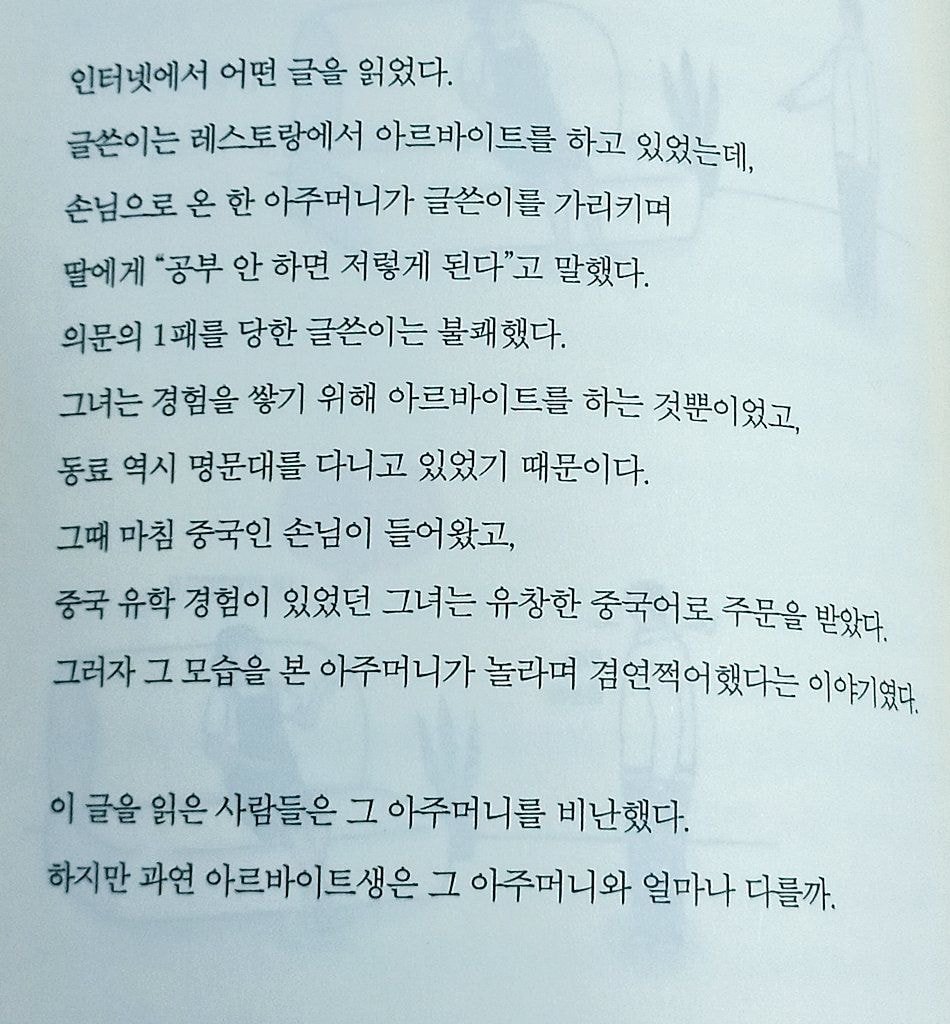 인터넷에서 어떤 글을 읽었다.
글쓴이는 레스토랑에서 아르바이트를 하고 있었는데,
손님으로 온 한 아주머니가 글쓴이를 가리키며
딸에게 “공부 안 하면 저렇게 된다”고 말했다.
의문의 1패를 당한 글쓴이는 불쾌했다.
그녀는 경험을 쌓기 위해 아르바이트를 하는 것뿐이었고,
동료 역시 명문대를 다니고 있었기 때문이다.
그때 마침 중국인 손님이 들어왔고,
중국 유학 경험이 있었던 그녀는 유창한 중국어로 주문을 받았다.
그러자 그 모습을 본 아주머니가 놀라며 겸연쩍어했다는 이야기였다.
이 글을 읽은 사람들은 그 아주머니를 비난했다.
하지만 과연 아르바이트생은 그 아주머니와 얼마나 다를까.